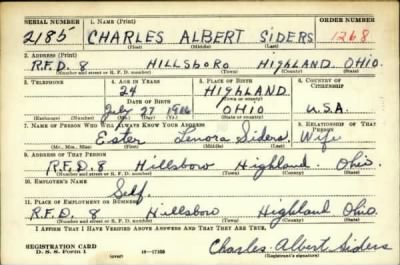 SERIAL NUMBER 1. NAME (Print) ORDER NUMBER
2185 CHARLES ALBERT SIDERS 1268
(First) (Middle) (Last)
2. ADDRESS (Print)
R.F.D. 8 HILLSBORO HIGHLAND OHIO.
(Number and street or R. F. D. number) (Town) (County) (State)
3. TELEPHONE 4. AGE IN YEARS 5. PLACE OF BIRTH 6. COUNTRY OF CITIZENSHIP
24 HIGHLAND
DATE OF BIRTH (Town or county)
July 27 1916 OHIO U.S.A.
(Exchange) (Number) (Mo.) (Day) (Yr.) (State or country)
7. NAME OF PERSON WHO WILL ALWAYS KNOW YOUR ADDRESS 8. RELATIONSHIP OF THAT PERSON
Ester Lenora Siders. Wife
(Mr., Mrs., Miss) (First) (Middle) (Last)
9. ADDRESS OF THAT PERSON
R.F.D. 8 Hillsboro Highland. Ohio.
(Number and street or R. F. D. number) (Town) (County) (State)
10. EMPLOYER'S NAME
Self
11. PLACE OF EMPLOYMENT OR BUSINESS
R.F.D. 8 Hillsboro Highland Ohio.
(Number and street or R. F. D. number) (Town) (County) (State)
I AFFIRM THAT I HAVE VERIFIED ABOVE ANSWERS AND THAT THEY ARE TRUE.
REGISTRATION CARD
D. S. S. Form 1 (over) 16—17105 Charles Albert Siders
(Registrant's signature)